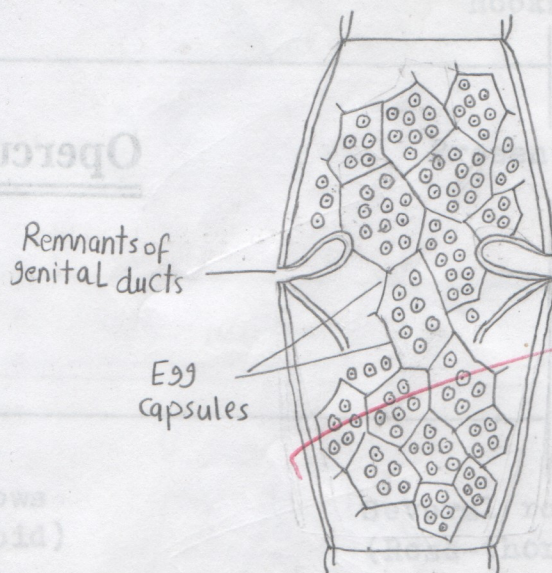 Remnants of
genital ducts
Egg
capsules